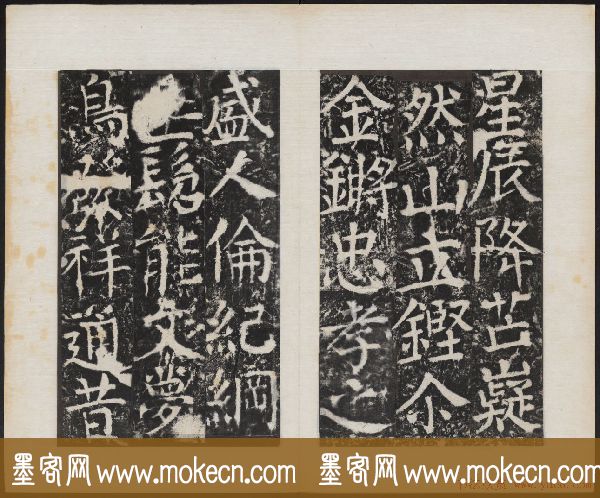 星辰降芒嶷
然山立鏗尒
金鏘忠孝之
盛人倫紀綱
髫能文夢
鳥祥道昔
墨客网 www.mokecn.com
墨客网 www.mokecn.com